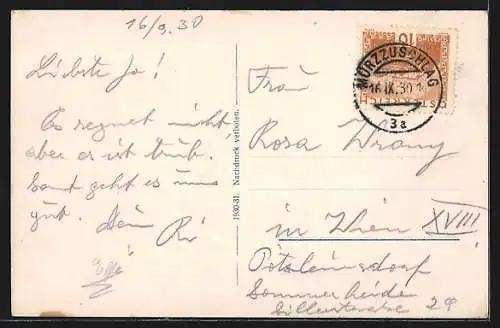 16/9.30
Liebste Ja!
Es regnet nicht
aber es ist trüb.
Sonst geht es uns
gut. Dein Ri
1930-31. Nachdruck verboten.
10
ÖSTERREICH
MÜRZZUSCHLAG
16.IX.30
3a
Frau
Rosa Wrany
in Wien XVIII
Pötzleinsdorf
Sommerheide
29